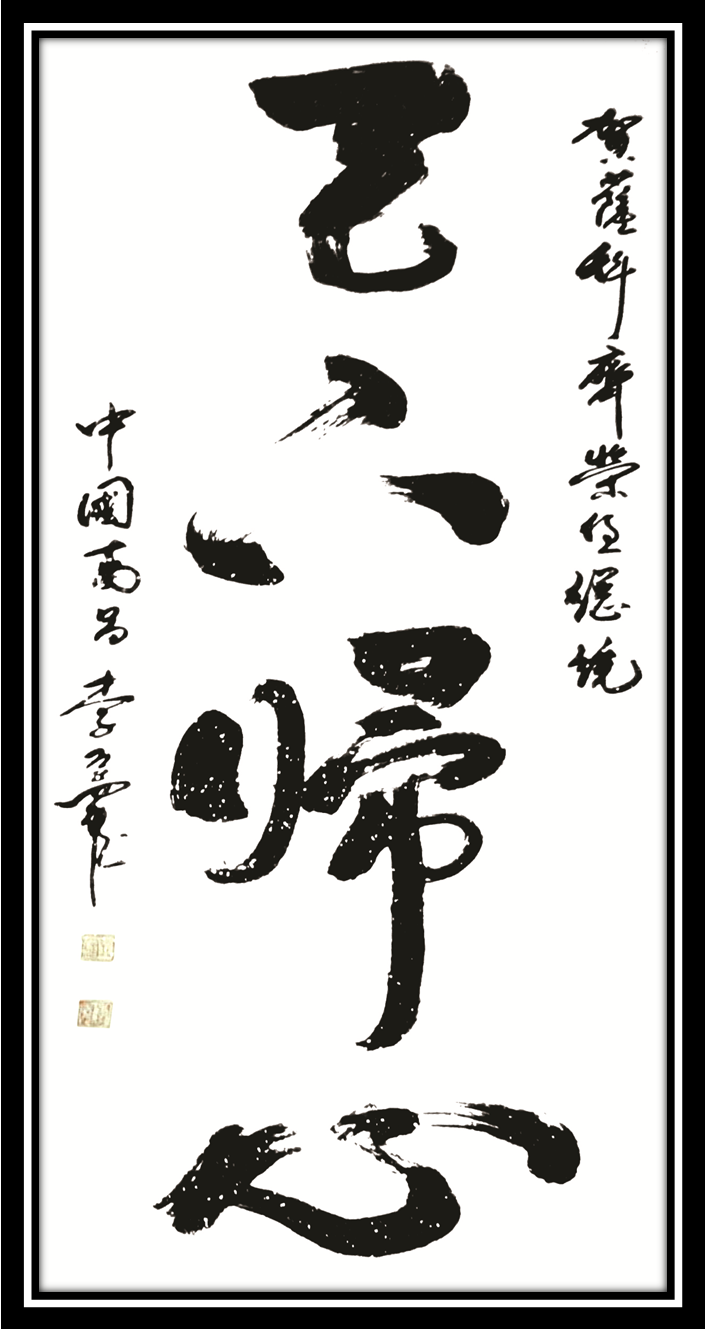 賀薩科齊榮任總統
天下歸心
中國南昌李